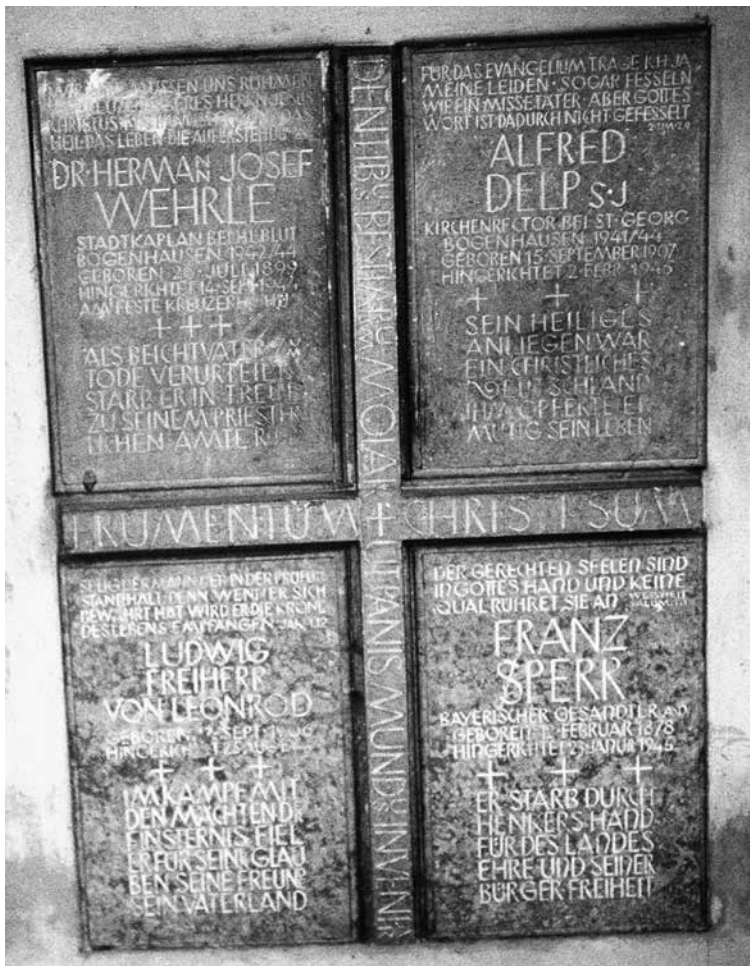 UNS RÜHMEN
HERRN JESUS
CHRISTUS DAS
HEIL DAS LEBEN DIE AUFERSTEHUNG
DR·HERMANN JOSEF
WEHRLE
STADTKAPLAN BEI HL·BLUT
BOGENHAUSEN 1942/44
GEBOREN 26·JULI 1899
HINGERICHTET 14·SEPT·1944
AM FESTE
+ + +
ALS BEICHTVATER
TODE VERURTEILT
STARB ER IN TREUE
ZU SEINEM PRIESTER
LICHEN AMTE
FÜR DAS EVANGELIUM TRAGE ICH JA
MEINE LEIDEN·SOGAR FESSELN
WIE EIN MISSETÄTER·ABER GOTTES
WORT IST DADURCH NICHT GEFESSELT
2·TIM·2·9
ALFRED
DELP S·J
KIRCHENRECTOR BEI ST·GEORG
BOGENHAUSEN 1941/44
GEBOREN 15·SEPTEMBER 1907
HINGERICHTET 2·FEBR·1945
+ + +
SEIN HEILIGES
ANLIEGEN WAR
EIN CHRISTLICHES
DEUTSCHLAND
IHM OPFERTE ER
MUTIG SEIN LEBEN
FRUMENTUM + CHRISTI SUM
DENTIBUS BESTIARUM MOLAR + UT PANIS MUNDUS INVENIAR
SELIG DER MANN DER IN DER PRÜFUNG
STANDHÄLT DENN WENN ER SICH
BEWÄHRT HAT WIRD ER DIE KRONE
DES LEBENS EMPFANGEN JAK 1,12
LUDWIG
FREIHERR
VON LEONROD
GEBOREN SEPT·
HINGERICHT
+ + +
IM KAMPF MIT
DEN MÄCHTEN DR
FINSTERNIS FIEL
ER FÜR SEINEN GLAU
BEN SEINE FREUNDE
SEIN VATERLAND
DER GERECHTEN SEELEN SIND
IN GOTTES HAND UND KEINE
QUAL RÜHRET SIE AN WEISHEIT
FRANZ
SPERR
BAYERISCHER GESANDTER A·D
GEBOREN FEBRUAR 1878
HINGERICHTET 23·JANUR 1945
+ + +
ER STARB DURCH
HENKERS HAND
FÜR DES LANDES
EHRE UND SEINER
BÜRGER FREIHEIT